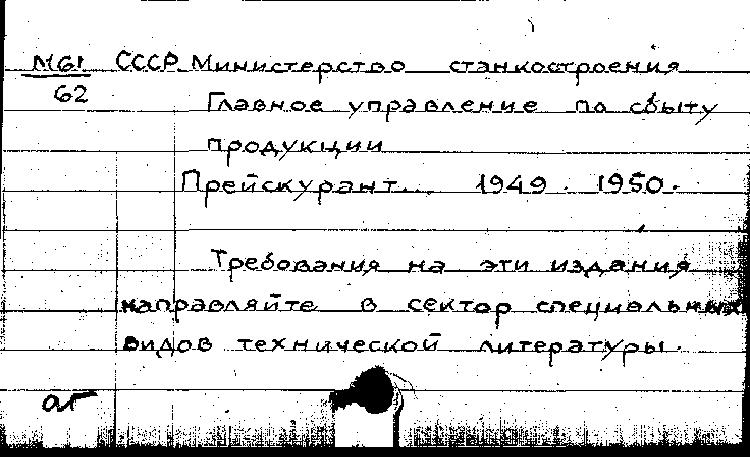 М61 СССР Министерство станкостроения
62
Главное управление по сбыту
продукции
Прейскурант... 1949. 1950.
Требования на эти издания
направляйте в сектор специальных
видов технической литературы.
аг